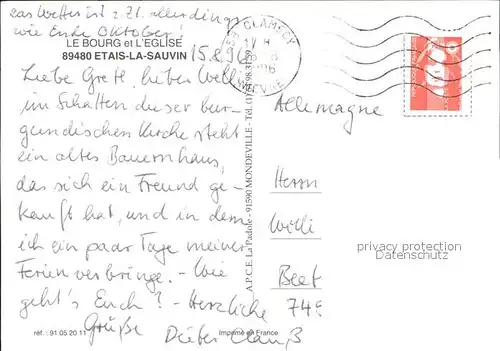 das Wetter ist z.Zt. allerdings
wie Ende Oktober!
LE BOURG et L'EGLISE
89480 ETAIS-LA-SAUVIN
15.8.96
58 CLAMECY
NIEVRE
Liebe Gretl, lieber Willi
im Schatten dieser bur-
gundischen Kirche steht
ein altes Bauernhaus,
das sich ein Freund ge-
kauft hat, und in dem
ich ein paar Tage meiner
Ferien verbringe. - Wie
geht's Euch? - Herzliche
Grüße Dieter Clauß
réf.: 91 05 20 11
Imprimé en France
A.P.C.E. La Padole - 91590 MONDEVILLE - Tél.
Allemagne
Herrn
Willi
Beet
745
privacy protection
Datenschutz